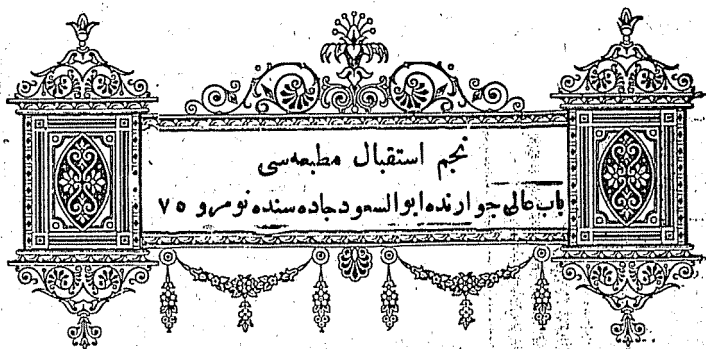 نجم استقبال مطبعه‌سی
باب عالی جوارنده ابوالسعود جاده‌سنده نومرو ٧٥